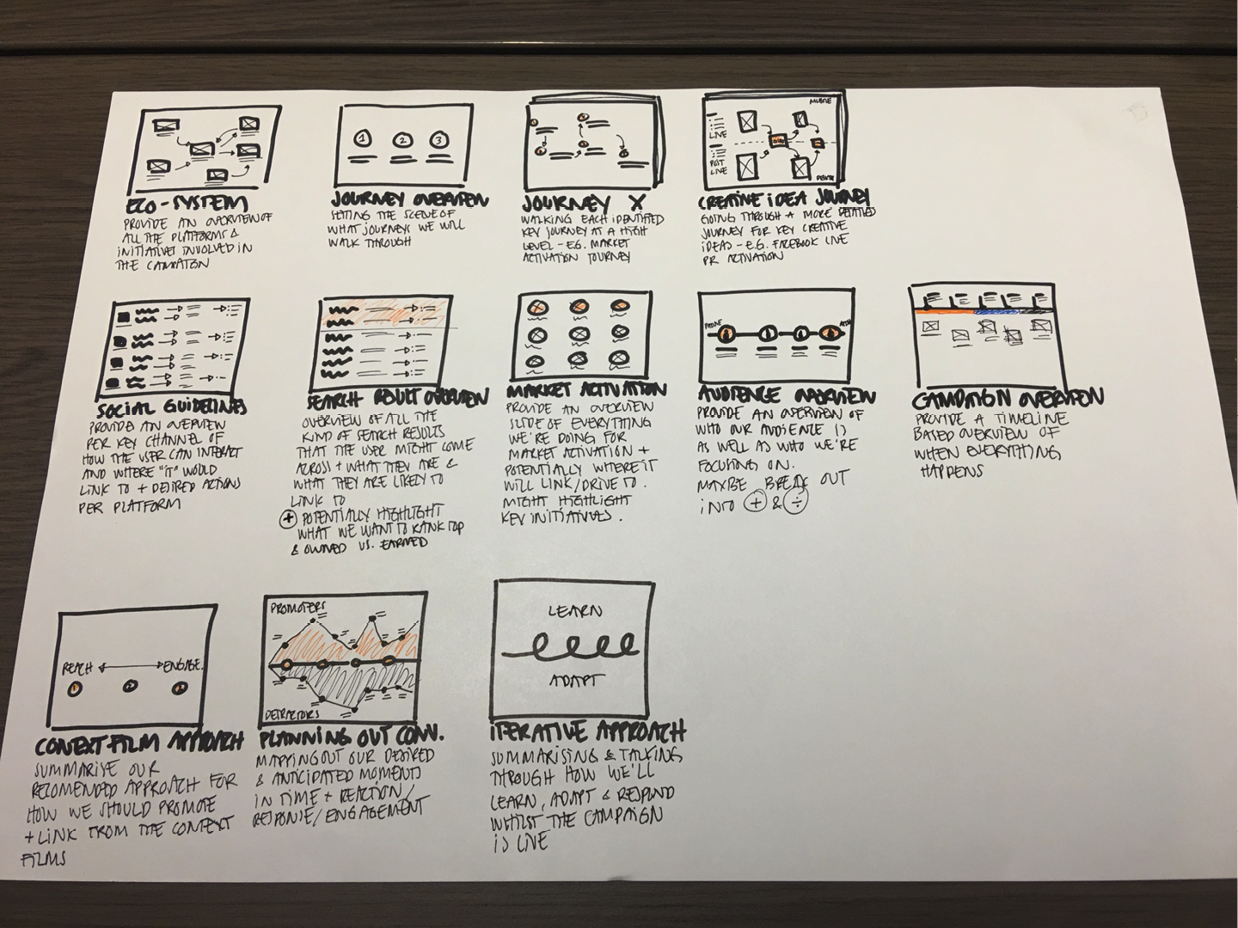 1 2 3
LIVE
POST LIVE
MOBILE
ECO-SYSTEM
PROVIDE AN OVERVIEW OF
ALL THE PLATFORMS &
INITIATIVES INVOLVED IN
THE CAMPAIGN
JOURNEY OVERVIEW
SETTING THE SCENE OF
WHAT JOURNEYS WE WILL
WALK THROUGH
JOURNEY X
WALKING EACH IDENTIFIED
KEY JOURNEY AT A HIGH
LEVEL - EG. MARKET
ACTIVATION JOURNEY
CREATIVE IDEA JOURNEY
GOING THROUGH A MORE DETAILED
JOURNEY FOR KEY CREATIVE
IDEAS - E.G. FACEBOOK LIVE
PR ACTIVATION
SOCIAL GUIDELINES
PROVIDE AN OVERVIEW
PER KEY CHANNEL OF
HOW THE USER CAN INTERACT
AND WHERE "IT" WOULD
LINK TO + DESIRED ACTIONS
PER PLATFORM
SEARCH RESULT OVERVIEW
OVERVIEW OF ALL THE
KIND OF SEARCH RESULTS
THAT THE USER MIGHT COME
ACROSS + WHAT THEY ARE &
WHAT THEY ARE LIKELY TO
LINK TO
+ POTENTIALLY HIGHLIGHT
WHAT WE WANT TO RANK TOP
& OWNED VS. EARNED
MARKET ACTIVATION
PROVIDE AN OVERVIEW
SLIDE OF EVERYTHING
WE'RE DOING FOR
MARKET ACTIVATION +
POTENTIALLY WHERE IT
WILL LINK/DRIVE TO.
MIGHT HIGHLIGHT
KEY INITIATIVES.
AUDIENCE OVERVIEW
PROVIDE AN OVERVIEW OF
WHO OUR AUDIENCE IS
AS WELL AS WHO WE'RE
FOCUSING ON.
MAYBE BREAK OUT
INTO + & ÷
CAMPAIGN OVERVIEW
PROVIDE A TIMELINE
BASED OVERVIEW OF
WHEN EVERYTHING
HAPPENS
REACH ENGAGE
1 2 3
CONTEXT-FILM APPROACH
SUMMARISE OUR
RECOMENDED APPROACH FOR
HOW WE SHOULD PROMOTE
+ LINK FROM THE CONTEXT
FILMS
PROMOTERS
DETRACTORS
PLANNING OUT CONV.
MAPPING OUT OUR DESIRED
& ANTICIPATED MOMENTS
IN TIME + REACTION/
RESPONSE/ENGAGEMENT
LEARN
ADAPT
ITERATIVE APPROACH
SUMMARISING & TALKING
THROUGH HOW WE'LL
LEARN, ADAPT & RESPOND
WHILST THE CAMPAIGN
IS LIVE